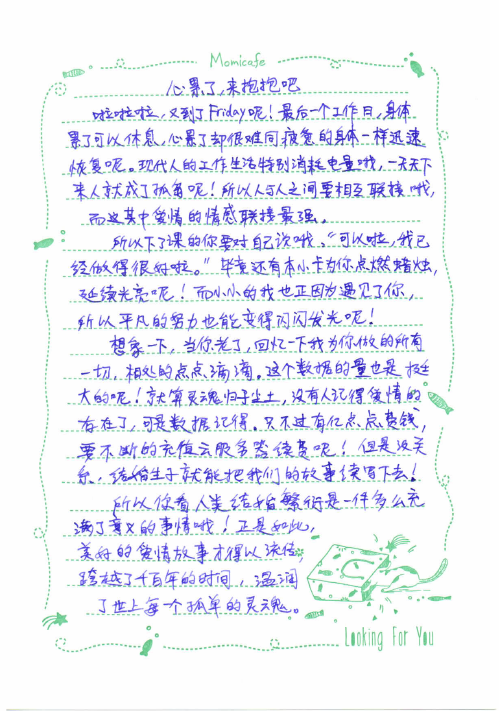 Momicafe
心累了,来抱抱吧
啦啦啦,又到了Friday呢!最后一个工作日,身体
累了可以休息,心累了却很难同疲惫的身体一样迅速
恢复呢。现代人的工作生活特别消耗电量哦,一天天下
来人就成了孤岛呢!所以人与人之间要相互联接哦,
而这其中爱情的情感联接最强。
所以下了课的你要对自己说哦、“可以啦,我已
经做得很好啦。”毕竟还有本小卡为你点燃蜡烛,
延续光亮呢!而小小的我也正因为遇见了你,
所以平凡的努力也能变得闪闪发光呢!
想象一下,当你老了,回忆一下我为你做的所有
一切,相处的点点滴滴。这个数据的量也是挺
大的呢!就算灵魂归于尘土,没有人记得爱情的
存在了,可是数据记得。只不过有亿点点费钱,
要不断的充值云服务器续费呢!但是没关
系,结婚生子就能把我们的故事续写下去!
所以你看人类结婚繁衍是一件多么充
满了意义的事情哦!正是如此,
美好的爱情故事才得以流传,
跨越了千百年的时间,温润
了世上每个孤单的灵魂。
Looking For You